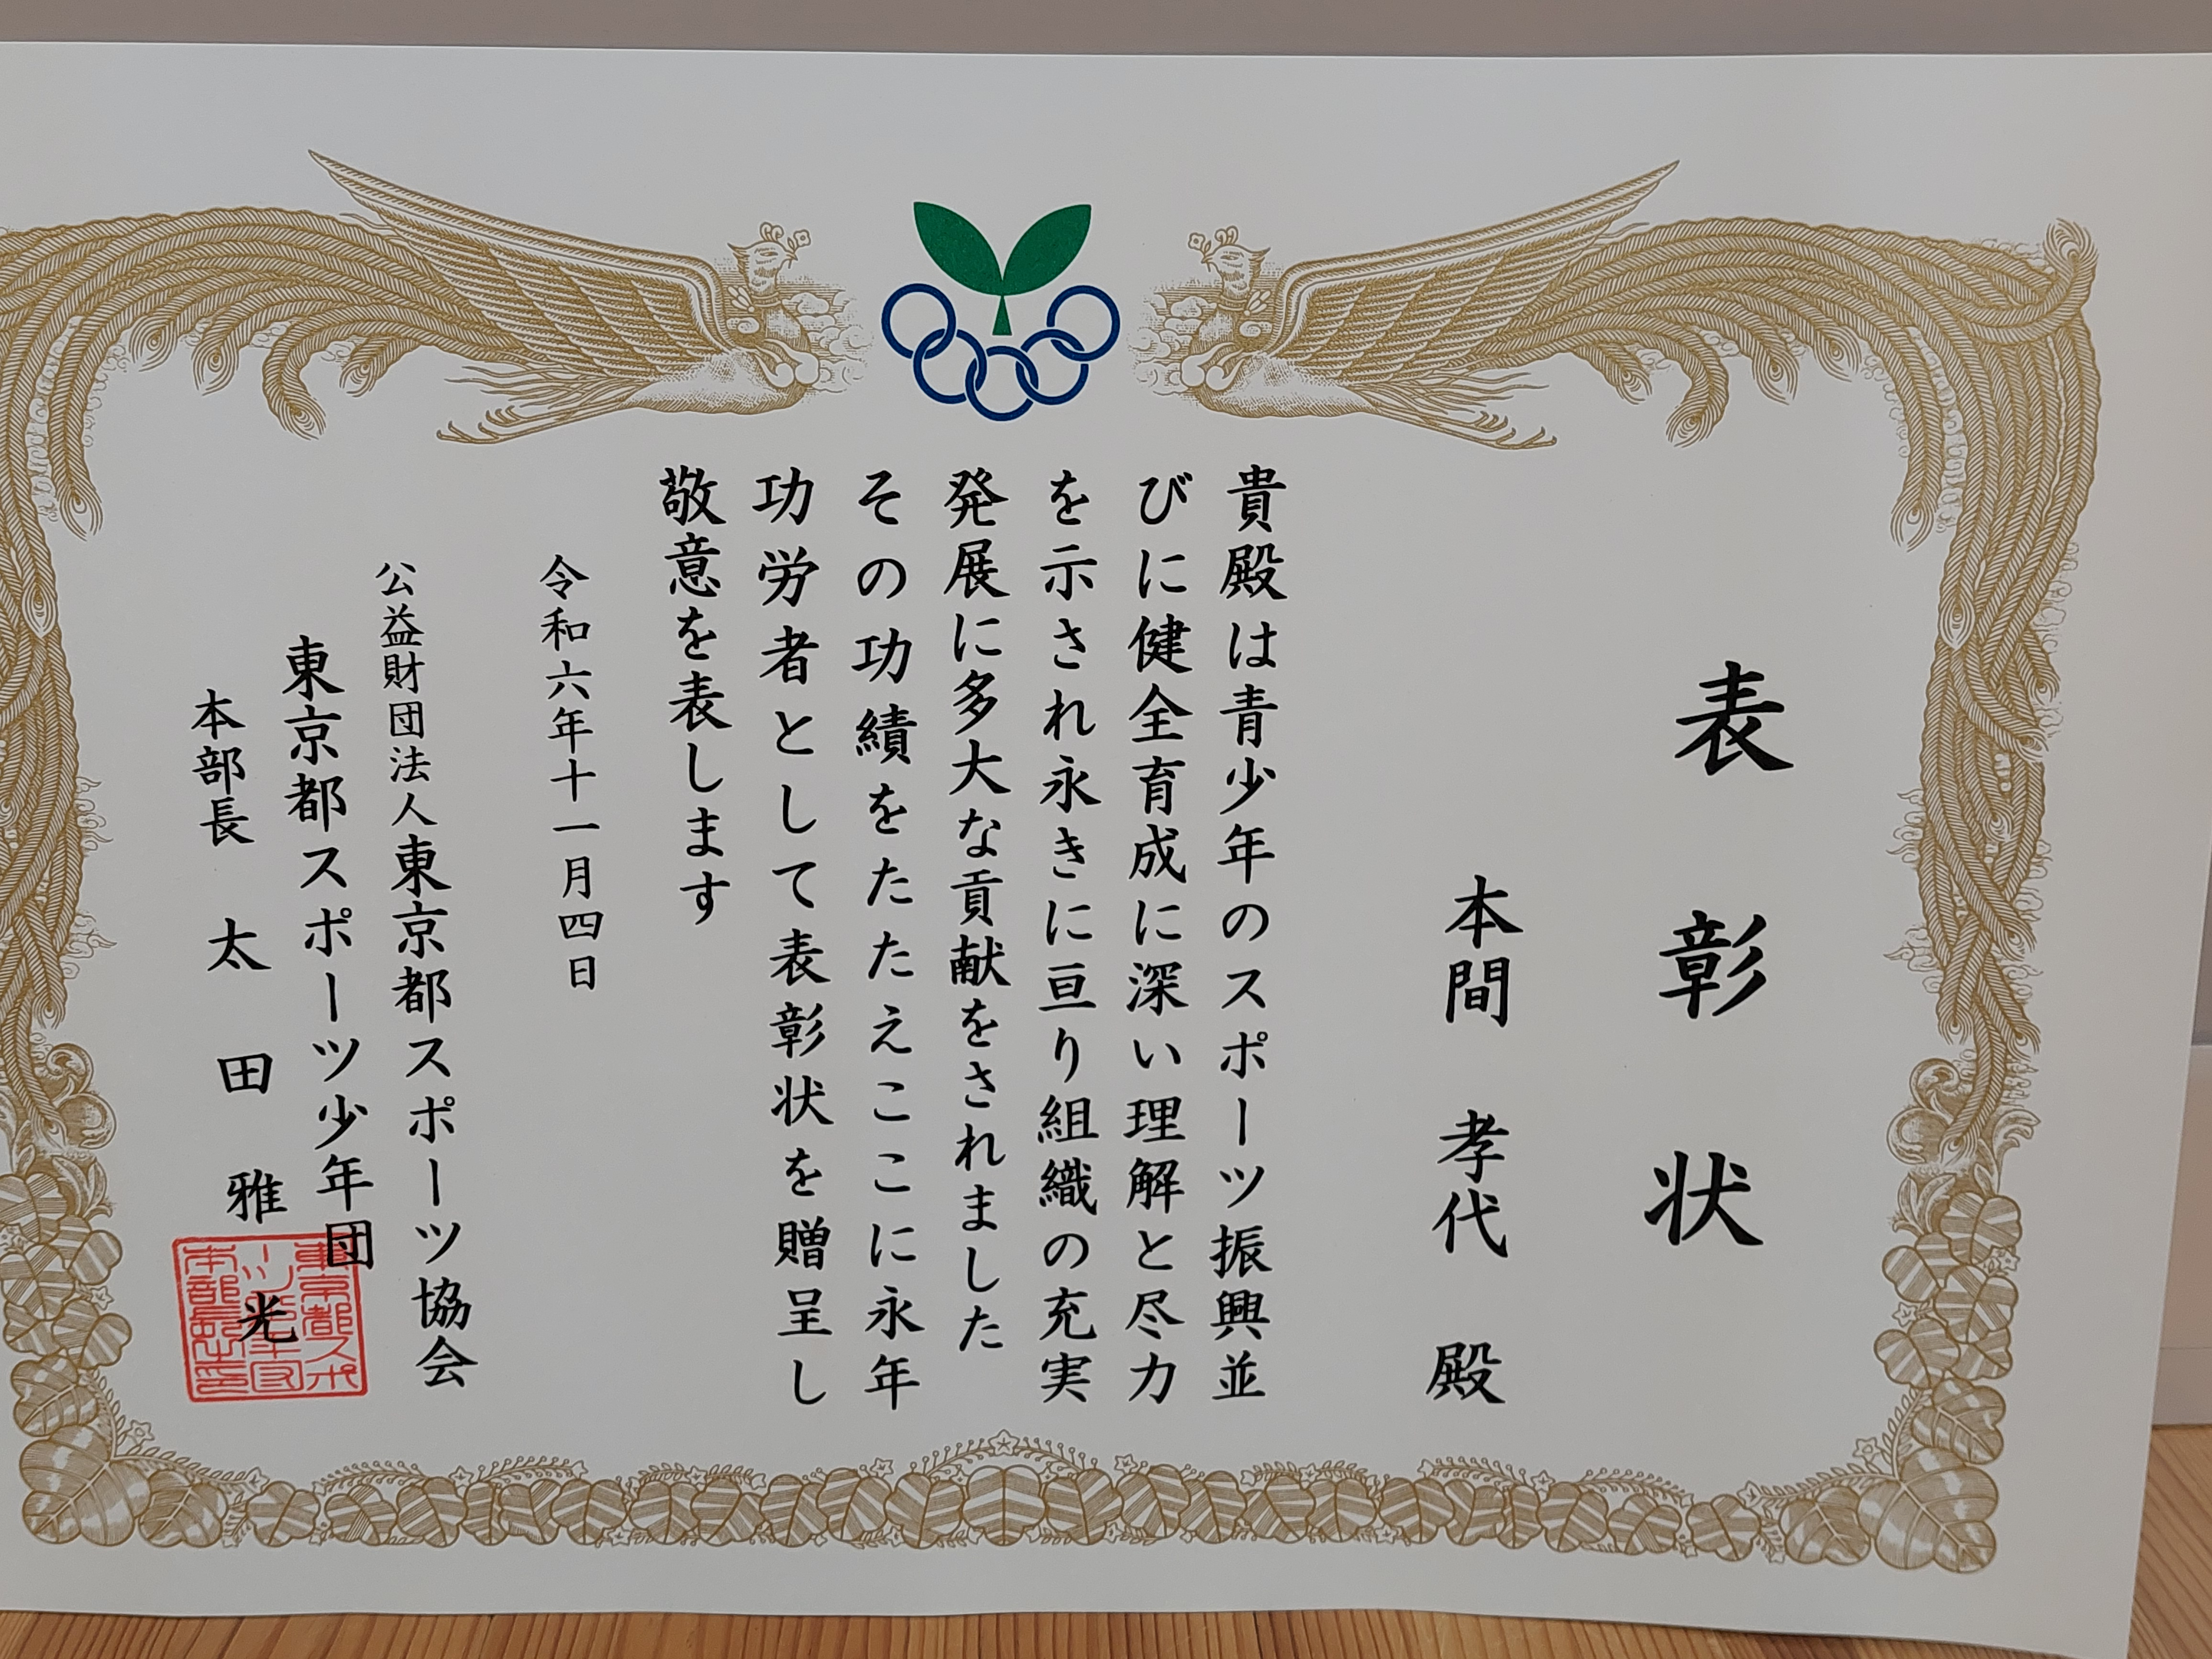 表彰状
本間 孝代 殿
貴殿は青少年のスポーツ振興並
びに健全育成に深い理解と尽力
を示され永きに亘り組織の充実
発展に多大な貢献をされました
その功績をたたえここに永年
功労者として表彰状を贈呈し
敬意を表します
令和六年十一月四日
公益財団法人東京都スポーツ協会
東京都スポーツ少年団
本部長 太田雅光